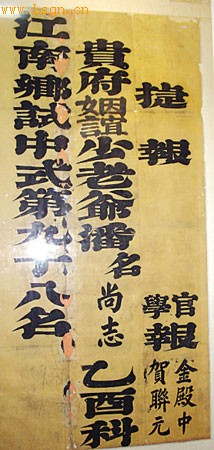 捷報
貴府姻誼少老爺潘名尚志乙酉科
江南鄉試中式第九十八名
官學報
金殿中
賀聯元
www.bsgn.cn